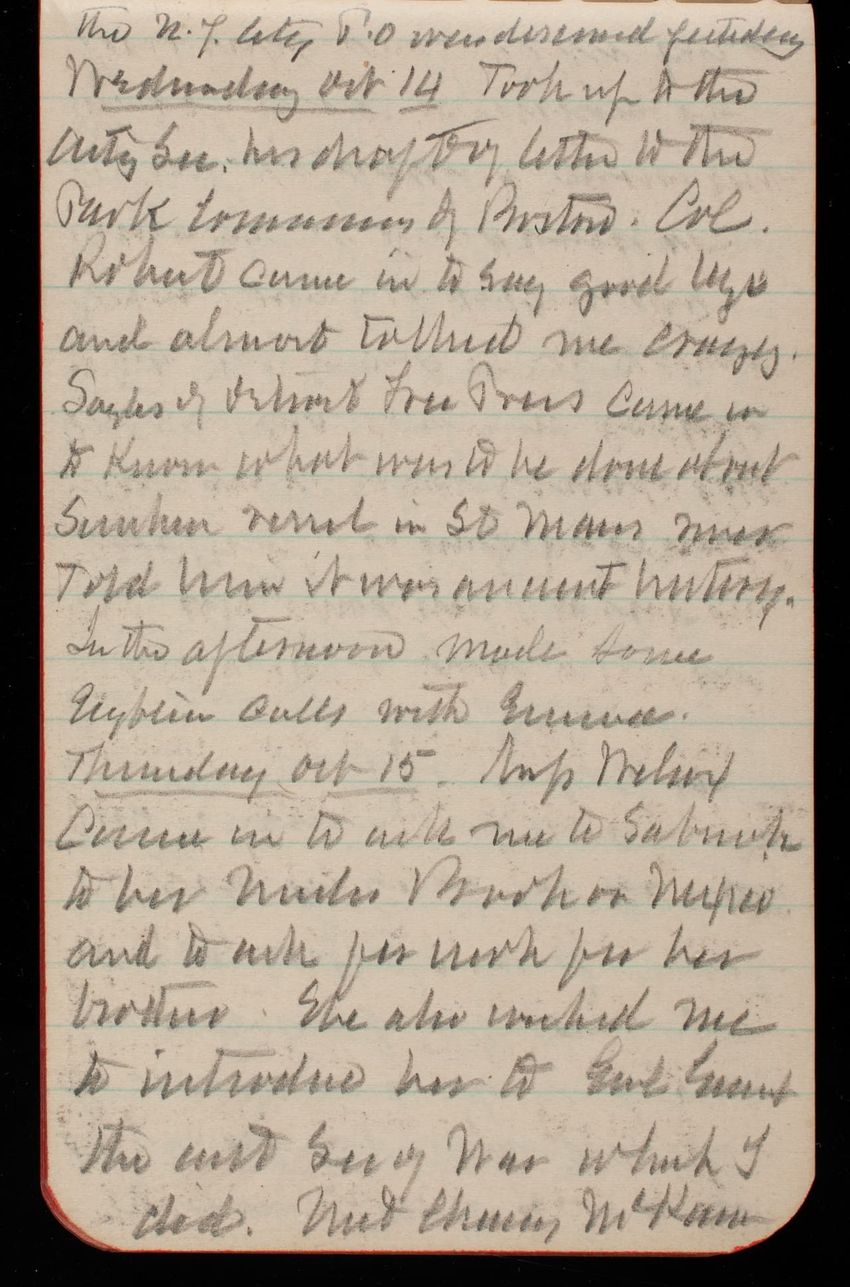 the N.Y. City P.O was discussed yesterday
Wednesday Oct 14 Took up to the
Actg Sec. his draft of letter to the
Park Commrs of Boston. Col.
Robert came in to say good bye
and almost talked me crazy.
Sayles of Detroit Free Press came in
to know what was to be done about
Sunken vessel in St Marys river
Told him it was ancient history.
In the afternoon made some
calls with Emma.
Thursday Oct 15. Wilcox
Came in to ask me to Subscribe
to her Book on Mexico
and to ask for work for her
brother. She also wished me
to introduce her to Genl Grant
the asst Sec of War which I
did. Met Chauncy McKeever